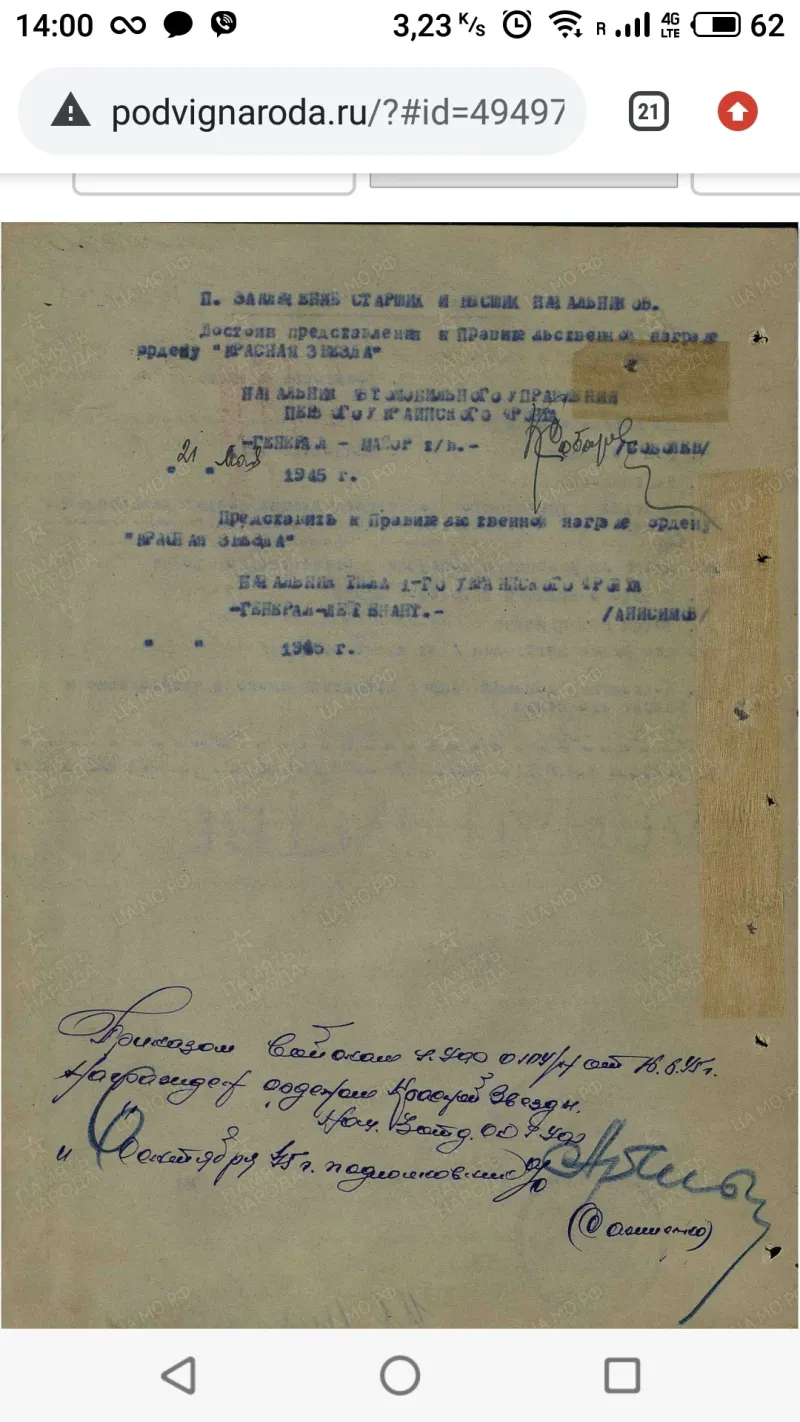 14:00
3,23 K/s
R
4G LTE
62
podvignaroda.ru/?#id=49497
21
П. ЗАКЛЮЧЕНИЕ СТАРШИХ И ВЫСШИХ НАЧАЛЬНИКОВ.
Достоин представления к Правительственной награде
ордену "КРАСНАЯ ЗВЕЗДА"
НАЧАЛЬНИК АВТОМОБИЛЬНОГО УПРАВЛЕНИЯ
ПЕРВОГО УКРАИНСКОГО ФРОНТА
-ГЕНЕРАЛ - МАЙОР т/в.- /СОБОЛЕВ/
"21" мая 1945 г.
Представить к Правительственной награде ордену
"КРАСНАЯ ЗВЕЗДА"
НАЧАЛЬНИК ТЫЛА 1-ГО УКРАИНСКОГО ФРОНТА
-ГЕНЕРАЛ-ЛЕЙТЕНАНТ.- /АНИСИМОВ/
" " 1945 г.
Приказом Войскам 1 Уко от 16.6.45г.
Награжден орденом Красной Звезды.
Нач.
" 6 октября 45 г. подполковник
ЦА МО РФ
ПАМЯТЬ НАРОДА